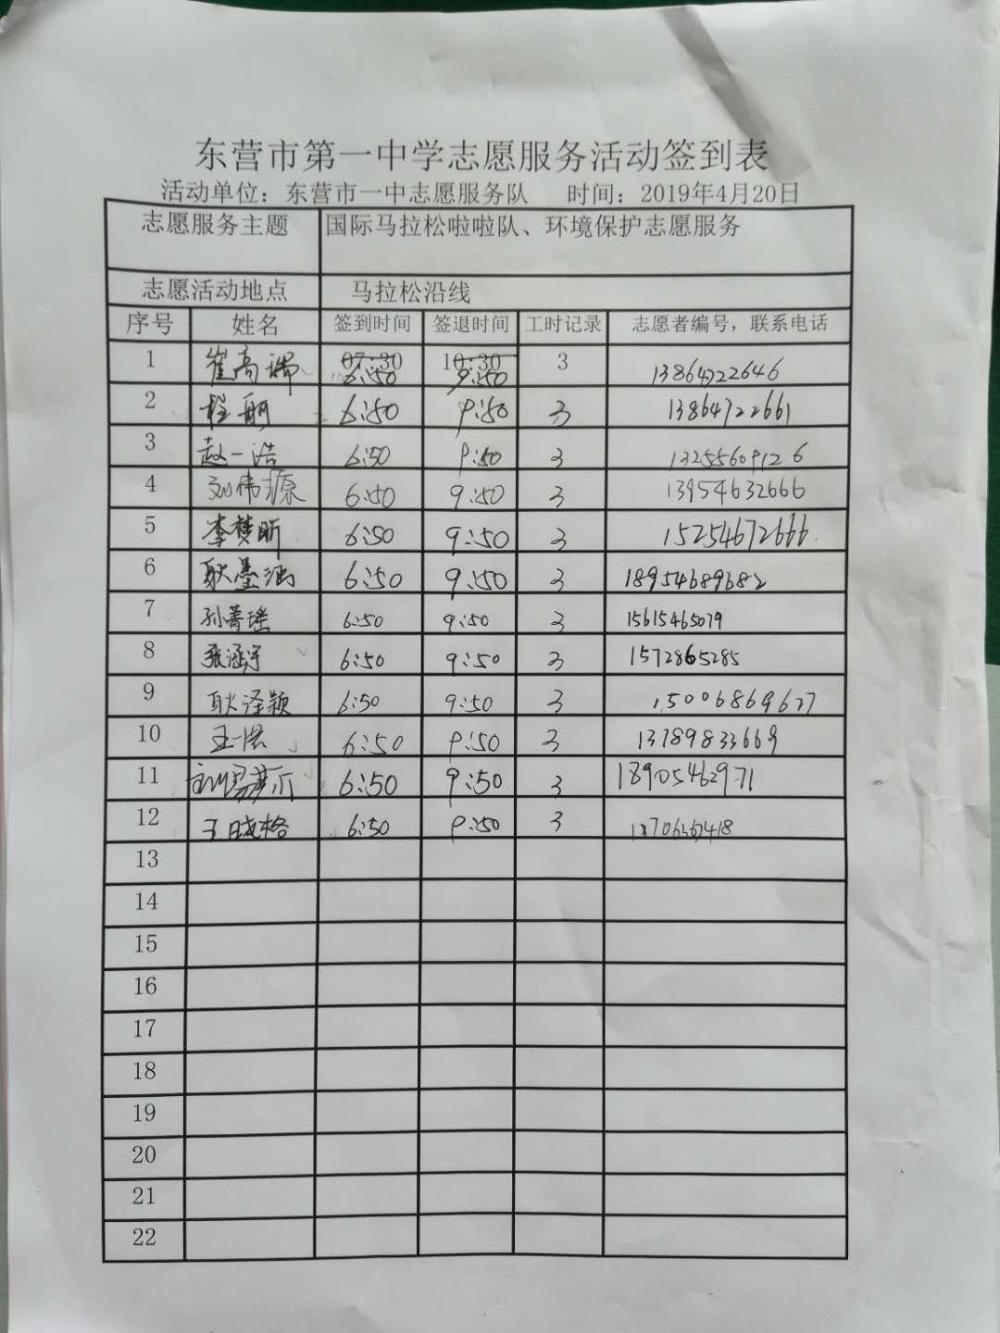 东营市第一中学志愿服务活动签到表
活动单位：东营市一中志愿服务队 时间：2019年4月20日
志愿服务主题 国际马拉松啦啦队、环境保护志愿服务
志愿活动地点 马拉松沿线
序号 姓名 签到时间 签退时间 工时记录 志愿者编号，联系电话
1 崔高瑞 07:30 6:50 10:30 9:50 3 13864722646
2 程 6:50 9:50 3 13864722661
3 赵一浩 6:50 9:50 3 13255609126
4 刘伟源 6:50 9:50 3 13954632666
5 李梦昕 6:50 9:50 3 15254672666
6 耿墨涵 6:50 9:50 3 18954689682
7 孙菁瑶 6:50 9:50 3 15615465079
8 张涵宇 6:50 9:50 3 1572865285
9 耿泽颖 6:50 9:50 3 15006869627
10 王一浩 6:50 9:50 3 13789833669
11 6:50 9:50 3
12 王晓格 6:50 9:50 3
13
14
15
16
17
18
19
20
21
22